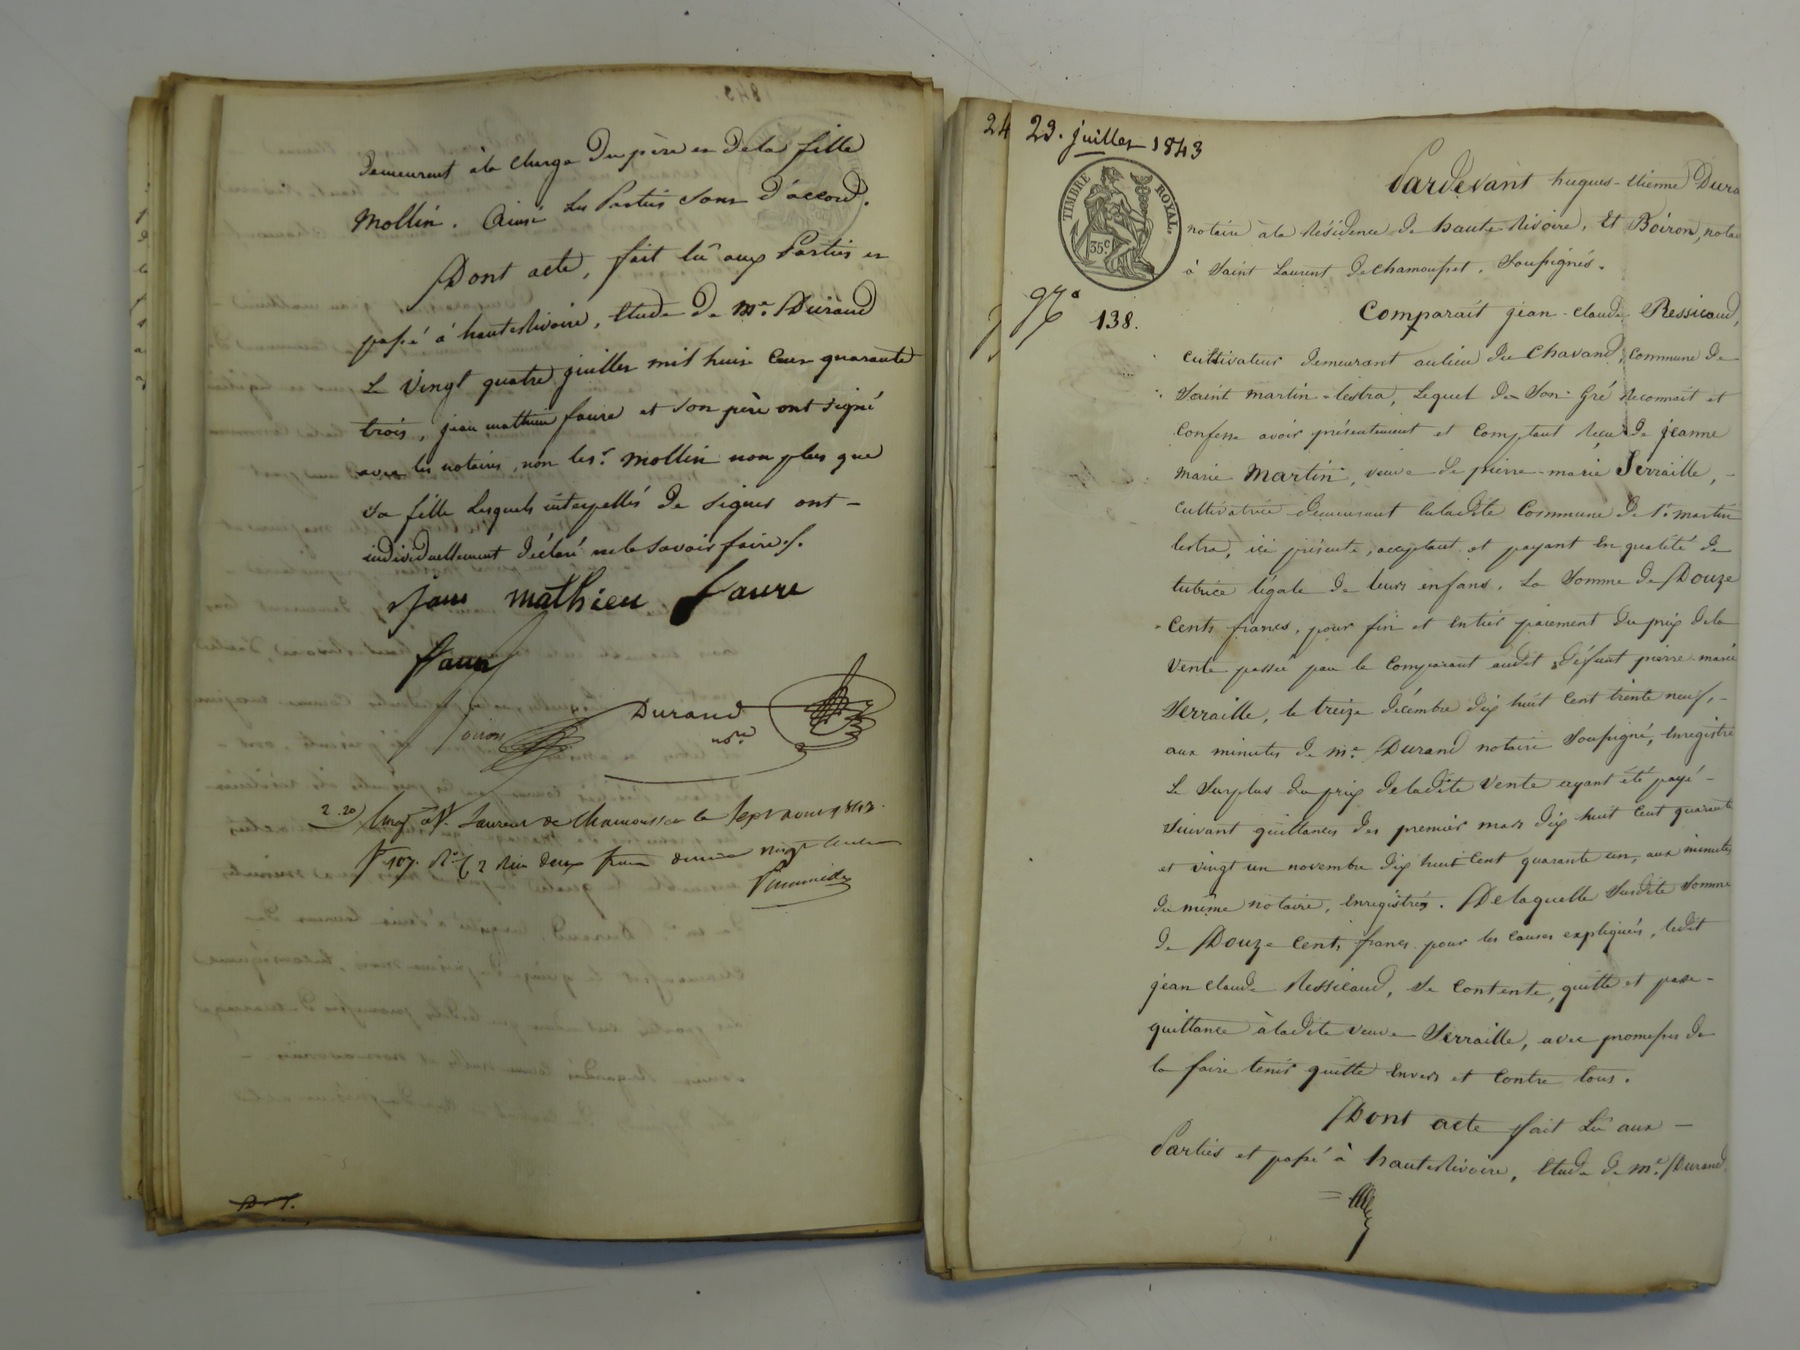 demeurent à la charge du père et de la fille
Mollin. Ainsi les Parties sont d'accord.
Dont acte, fait lû aux Parties et
passé à hauterivoire, Etude de Me. Durand
Le vingt quatre juillet mil huit Cent quarante
trois, jean mathieu faure et son père ont signé
avec les notaires, non les.r Mollin non plus que
sa fille Lesquels interpellés de signer ont -
individuellement déclaré ne le savoir faire./.
Jean mathieu faure
faure
Boiron
Durand
nore
2.20 Enreg. à St. Laurent de Chamousset le sept aout 1843.
fo 107. Ro. C. 2 Reçu deux francs decime vingt centimes
24
23. juillet 1843
TIMBRE ROYAL.
35c
138.
Pardevant hugues-Etienne Dura
notaire à la Résidence de haute Rivoire, Et Boiron, nota
à Saint Laurent de chamousset, Soussignés.
Comparait jean-claude Ressicaud,
cultivateur demeurant au lieu du Chavand, Commune de
Saint martin-lestra, Lequel de Son Gré Reconnait et
Confesse avoir présentement et Comptant Reçu de jeanne
marie Martin, veuve de pierre-marie Serraille, -
Cultivatrice demeurant en ladite Commune de St. martin
lestra, ici présente, acceptant et payant En qualité de
tutrice légale de leurs enfans, La Somme de Douze
Cents francs, pour fin et Entier paiement du prix de la
Vente passée par le Comparant audit défunt pierre marie
Serraille, le treize décembre dix huit Cent trente neuf, -
aux minutes de me. Durand notaire Soussigné, Enregistré
Le Surplus du prix de ladite Vente ayant été payé -
Suivant quittances des premier mars dix huit Cent quarante
et vingt un novembre dix huit Cent quarante un, aux minutes
du même notaire, Enregistrés. De laquelle Susdite Somme
de Douze Cents francs pour les Causes expliquées, ledit
jean claude Ressicaud, Se Contente, quitte et passe -
quittance à ladite veuve Serraille, avec promesses de
la faire tenir quitte Envers et Contre tous.
Dont acte fait Lû aux -
Parties et passé à hauterivoire, Etude de me. Durand